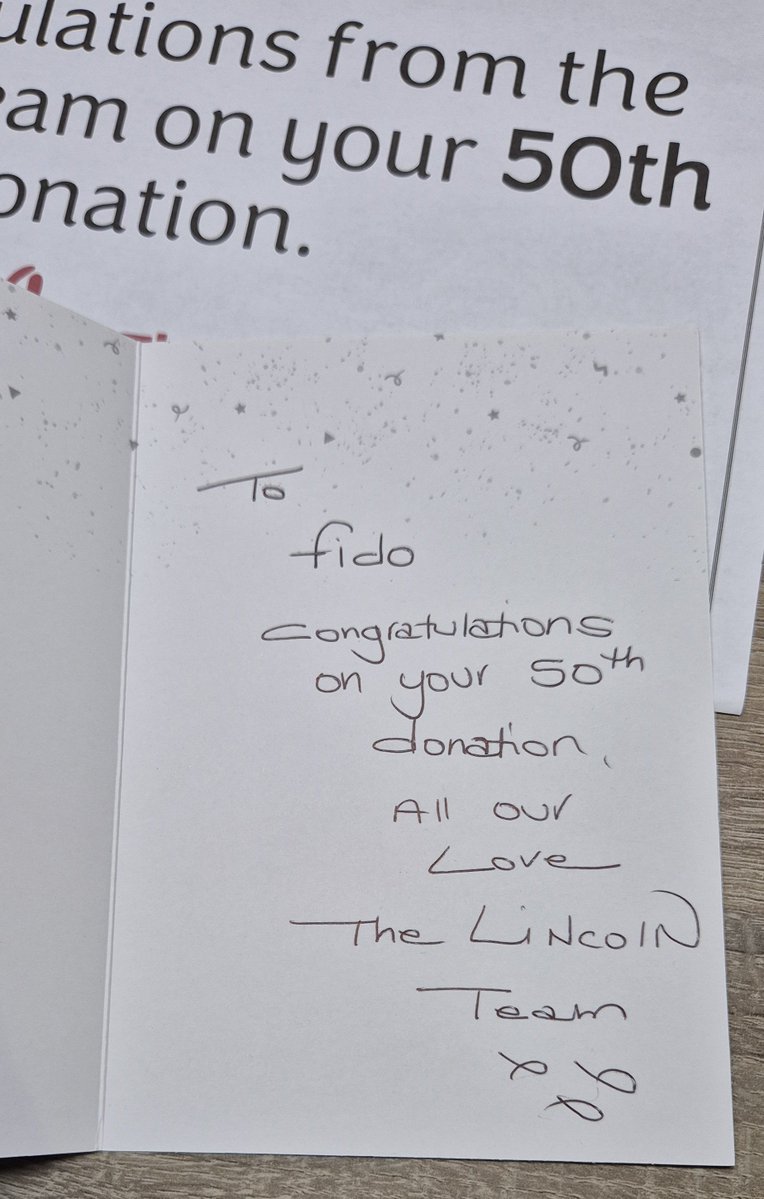 ulations from the
eam on your 50th
onation.
To
fido
congratulations
on your 50th
donation.
All our
Love
The LiNcolN
Team
xxx